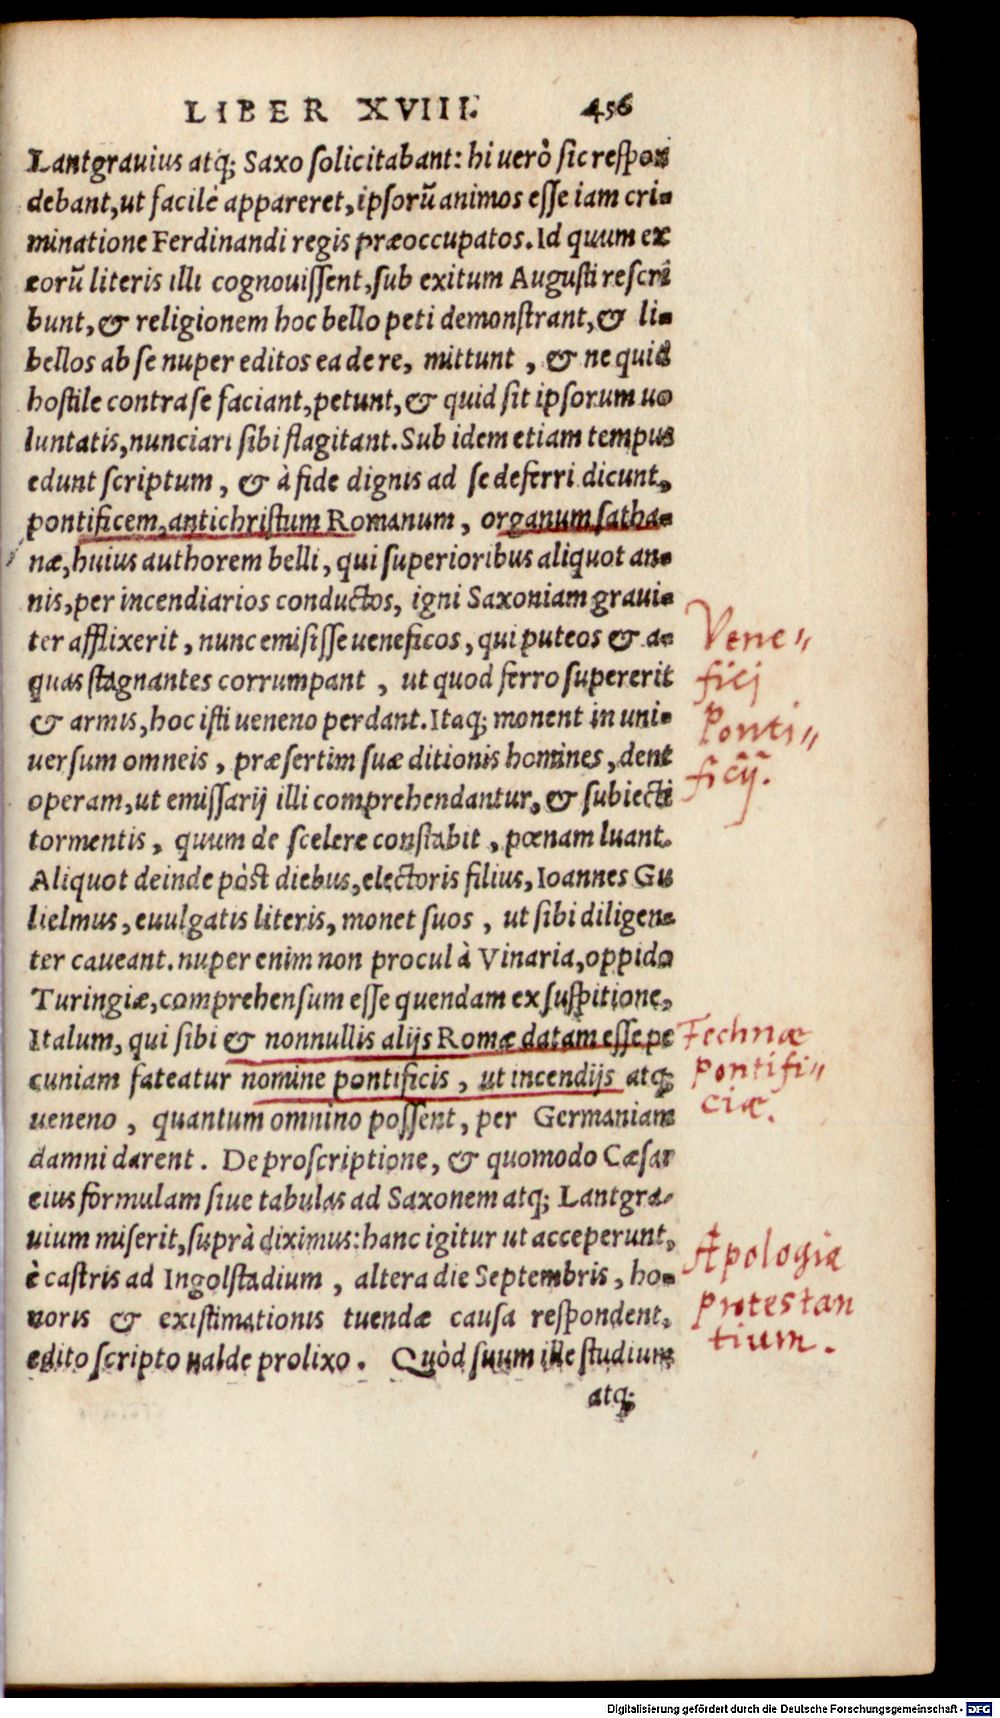 LIBER XVIII. 456
Lantgrauius atq; Saxo solicitabant: hi uerò sic respon
debant, ut facilè appareret, ipsorũ animos esse iam cri-
minatione Ferdinandi regis præoccupatos. Id quum ex
eorũ literis illi cognouissent, sub exitum Augusti rescri
bunt, & religionem hoc bello peti demonstrant, & li-
bellos ab se nuper editos ea de re, mittunt, & ne quid
hostile contra se faciant, petunt, & quid sit ipsorum uo
luntatis, nunciari sibi flagitant. Sub idem etiam tempus
edunt scriptum, & à fide dignis ad se deferri dicunt,
pontificem, antichristum Romanum, organum satha-
næ, huius authorem belli, qui superioribus aliquot an-
nis, per incendiarios conductos, igni Saxoniam graui-
ter afflixerit, nunc emisisse ueneficos, qui puteos & a-
quas stagnantes corrumpant, ut quod ferro supererit
& armis, hoc isti ueneno perdant. Itaq; monent in uni-
uersum omneis, præsertim suæ ditionis homines, dent
operam, ut emissarij illi comprehendantur, & subiecti
tormentis, quum de scelere constabit, pœnam luant.
Aliquot deinde pòst diebus, electoris filius, Ioannes Gu
lielmus, euulgatis literis, monet suos, ut sibi diligen-
ter caueant. nuper enim non procul à Vinaria, oppido
Turingiæ, comprehensum esse quendam ex suspitione,
Italum, qui sibi & nonnullis alijs Romæ datam esse pe
cuniam fateatur nomine pontificis, ut incendijs atq;
ueneno, quantum omnino possent, per Germaniam
damni darent. De proscriptione, & quomodo Cæsar
eius formulam siue tabulas ad Saxonem atq; Lantgra-
uium miserit, suprà diximus: hanc igitur ut acceperunt,
è castris ad Ingolstadium, altera die Septembris, ho-
noris & existimationis tuendæ causa respondent,
edito scripto ualde prolixo. Quòd suum ille studium
atq;
Vene-
ficj
Ponti-
ficij.
Technæ
pontifi-
ciæ.
Apologia
protestan
tium.
Digitalisierung gefördert durch die Deutsche Forschungsgemeinschaft - DFG